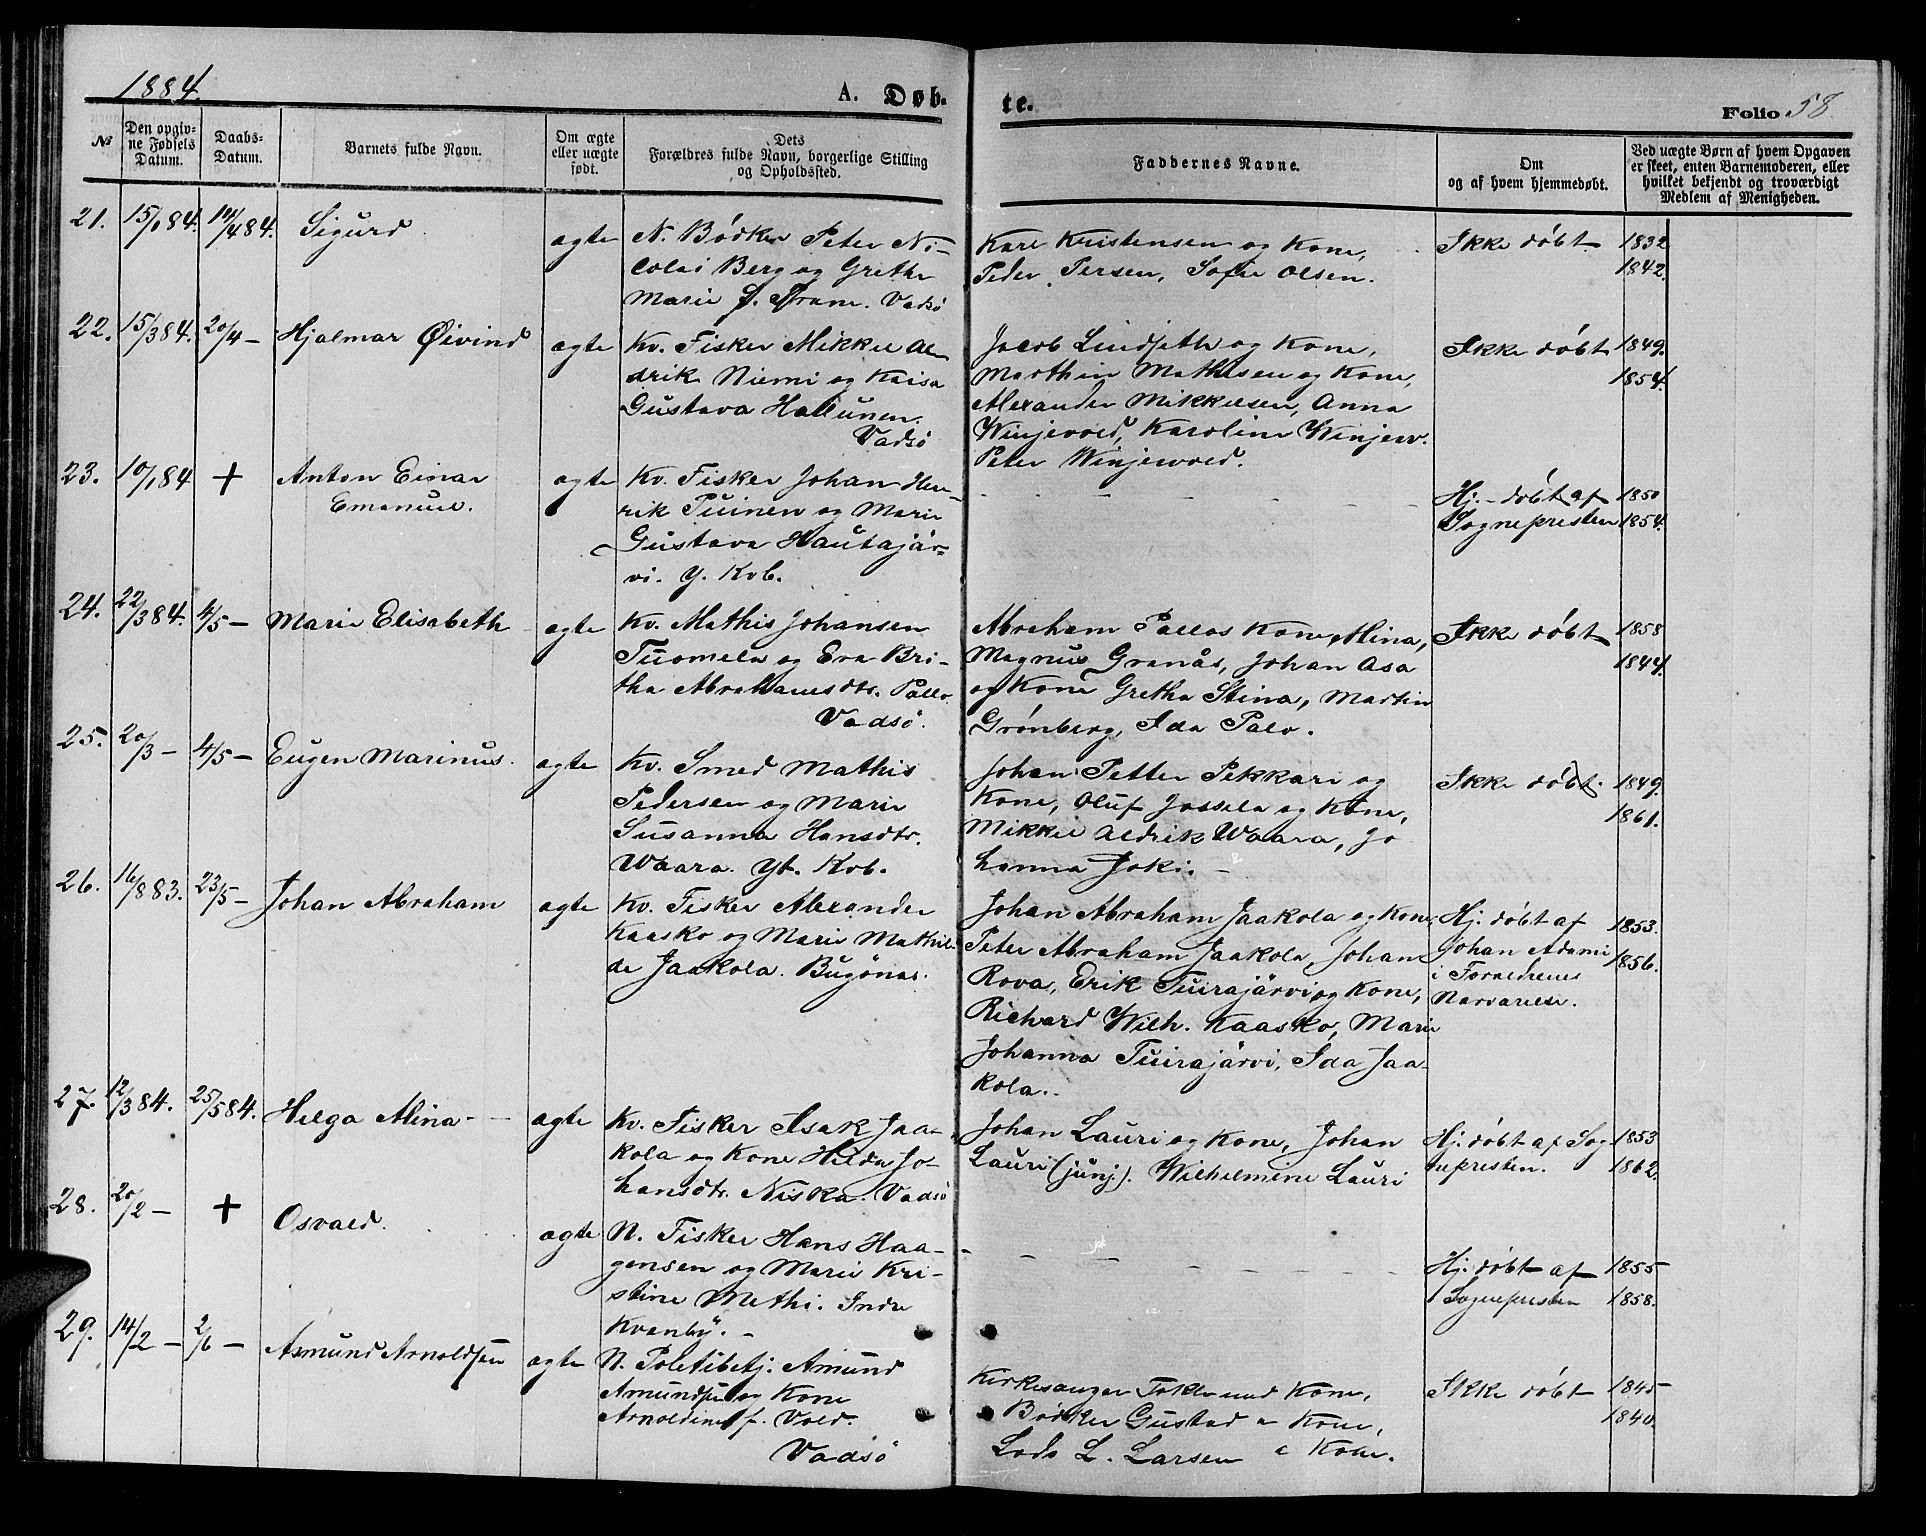 1884.
A. Døb-
te.
Folio 58.
№
Den opgiv-
ne Fødsels
Datum.
Daabs-
Datum.
Barnets fulde Navn.
Om ægte
eller uægte
født.
Dets
Forældres fulde Navn, borgerlige Stilling
og Opholdssted.
Faddernes Navne.
Om
og af hvem hjemmedøbt.
Ved uægte Børn af hvem Opgaven
er skeet, enten Barnemoderen, eller
hvilket bekjendt og troværdigt
Medlem af Menigheden.
21.
15/1 84.
14/4 84.
Sigurd
agte
N. Bødker Peter Ni-
colai Berg og Grethe
Marie J. Vadsö
Kare Kristensen og Kone,
Peder Persen, Sofie Olsen.
Ikke döbt
1832
1842.
22.
15/3 84.
20/4 -
Hjalmar Øivind
agte
Kv. Fisker Mikkel Al-
drik Niemi og Kaisa
Gustava Hallunen.
Vadsö
Jacob og Kone,
Marthin Mathisen og Kone,
Alexander Mikkelsen, Anna
Winjevold, Karoline Winjew.
Peter Winjewold.
Ikke döbt
1849.
1854.
23.
10/1 84
+
Anton Einar
Emanuel.
agte
Kv. Fisker Johan Hen-
rik Puinen og Marie
Gustava Hautajär-
vi. Y. Kvb.
Hj.-döbt af
Sognepresten
1850
1854.
24.
22/3 84.
4/5 -
Marie Elisabeth
agte
Kv. Mathis Johansen
Tuomela og Eva Bri-
tha Abrahamsdtr. Pallo.
Vadsö.
Abraham Pallos Kone, Alina,
Magnus Granås, Johan Asa
og Kone Gretha Stina, Martin
Grönberg, Ida Palo.
Ikke döbt
1858
1844.
25.
20/3 -
4/5 -
Eugen Marinus.
agte
Kv. Smed Mathis
Pedersen og Marie
Susanna Hansdtr.
Waara. Yt. Kvb.
Johan Petter Pekkari og
Kone, Oluf Jossela og Kone,
Mikkel Aldrik Waara, Jo
hanna Joki. -
Ikke döbt.
1849.
1861.
26.
16/8 83.
23/5 -
Johan Abraham
agte
Kv. Fisker Alexander
Kaasko og Marie Mathil-
de Jaakola. Bugönes.
Johan Abraham Jaakola og Kone,
Peter Abraham Jaakola, Johan
Rova, Erik Tuirajärvi og Kone,
Richard Wilh. Kaasko, Marie
Johanna Tuirajärvi, Ida Jaa-
kola.
Hj. döbt af
Johan Adami
i Foraeldrenes
Narvarelse.
1853.
1856.
27.
12/3 84.
25/5 84.
Helga Alina -
agte
Kv. Fisker Isak Jaa-
kola og Kone Hilda Jo-
hansdtr. Niska. Vadsö
Johan Lauri og Kone, Johan
Lauri (junj.). Wilhelmine Lauri
Hj. döbt af Sog
nepresten.
1853
1862.
28.
20/2 -
+
Osvald.
agte
N. Fisker Hans Haa-
gensen og Marie Kri-
stine Methi. Indre
Kvanby. -
Hj. döbt af
Sognepresten
1855
1858.
29.
14/2 -
2/6 -
Asmund Arnoldsen
agte
N. Politibetj. Amund
Amundsen og Kone
Arnoldine f. Vold.
Vadsö
Kirkesanger og Kone,
Bödker Gustad o Kone,
Lods L. Larsen o Kone.
Ikke döbt
1845
1840.